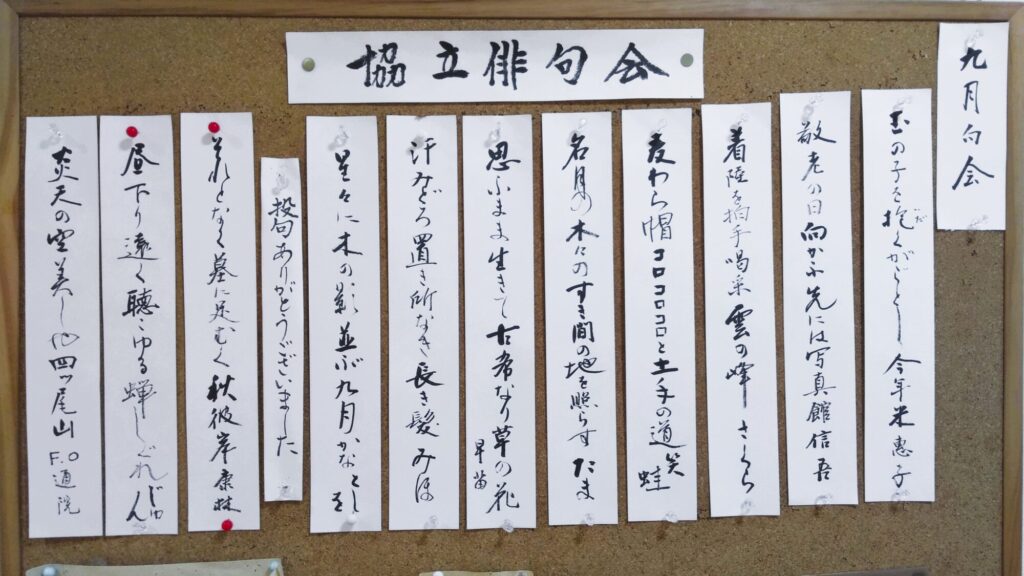 協立俳句会
九月句会
玉の子を抱くがごとし今年米 恵子
だ
敬老の日向かふ先には写真館 信吾
着陸を拍手喝采雲の峰 さくら
麦わら帽コロコロコロと土手の道 笑蛙
名月の木にのすき間の地を照らす たま
思ふまま生きて古希なり草の花 早苗
汗みどろ置き所なき長き髪 みほ
等々に木の影並ぶ九月かな とし
投句ありがとうございました
それとなく墓に足むく秋彼岸 康林
昼下り遠く聴こゆる蝉しぐれ じゅん
炎天の空美し也四ッ尾山 F.O通院